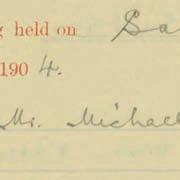 g held on Sa
1904.
Mr. Michael